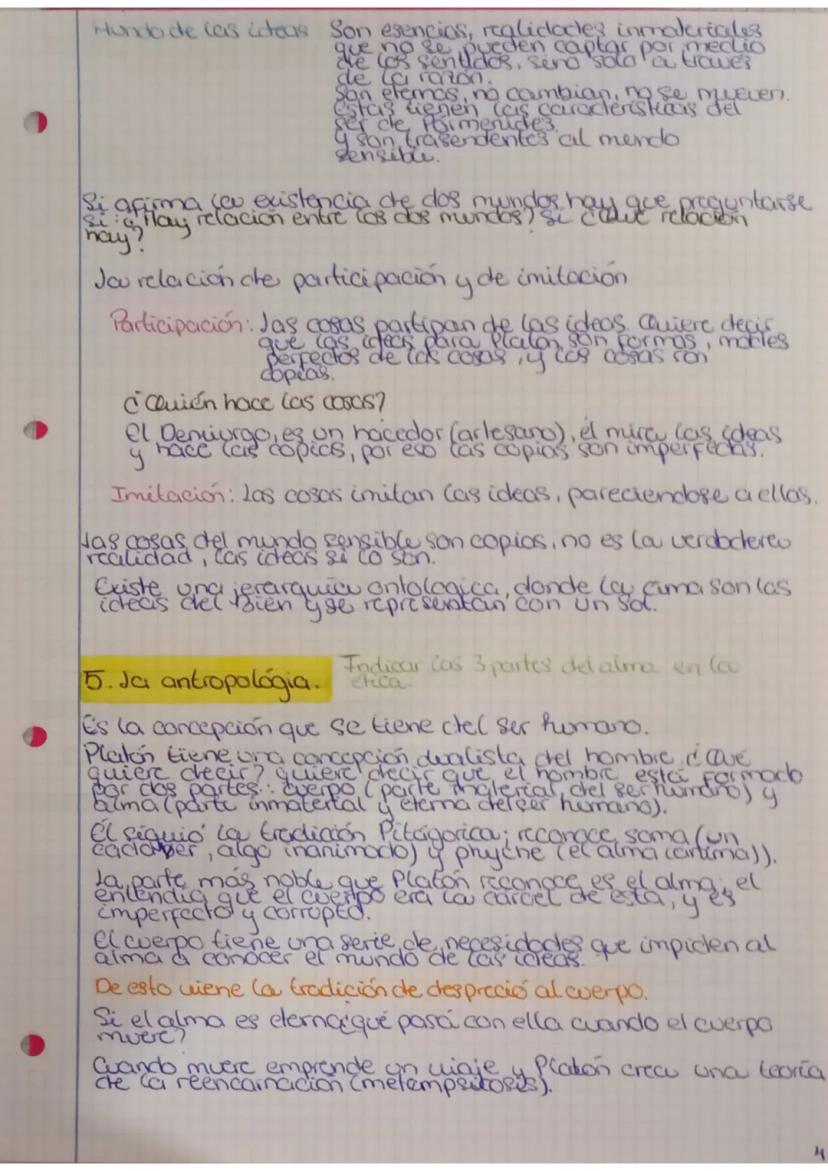 Mundo de las ideas Son esencias, realidades inmateriales
que no se pueden captar por medio
de los sentidos, sino solo a traves
de la razón.
Son eternas, no cambian, no se mueven.
Estas tienen las características del
ser de Parmenides.
y son trasendentes al mundo
sensible.
Si afirma la existencia de dos mundos hay que preguntarse
si: ¿Hay relación entre los dos mundos? Si ¿Qué relación
hay?
La relación de participación y de imitación
Participación: Las cosas partipan de las ideas. Quiere decir
que las ideas para Platón son formas, mobles
perfectos de las cosas, y las cosas son
copias.
¿Quién hace las cosas?
El Demiurgo, es un hacedor (artesano), él mira las ideas
y hace las copias, por eso las copias son imperfectas.
Imitación: las cosas imitan las ideas, pareciendose a ellas.
Las cosas del mundo sensible son copias, no es la verdadera
realidad, las ideas si lo son.
Existe una jerarquía ontologica, donde la cima son las
ideas del Bien y se representan con un sol.
5. La antropológia. Indicar las 3 partes del alma en la
etica.
Es la concepción que se tiene del ser humano.
Platón tiene una concepción dualista del hombre ¿Qué
quiere decir? quiere decir que el hombre está formado
por dos partes: cuerpo (parte material del ser humano) y
alma (parte inmaterial y eterna del ser humano).
Él siguió la tradición Pitágorica; reconoce soma (un
cadaver, algo inanimado) y phyche (el alma (anima)).
La parte más noble que Platón reconoce es el alma; el
entendía que el cuerpo era la carcel de esta, y es
imperfecto y corrupto.
El cuerpo tiene una serie de necesidades que impiden al
alma a conocer el mundo de las ideas.
De esto viene la tradición de despreció al cuerpo.
Si el alma es eterna ¿qué pasa con ella cuando el cuerpo
muere?
Cuando muere emprende un viaje y Platón crea una teoría
de la reencarnación (metempsitosis).
4